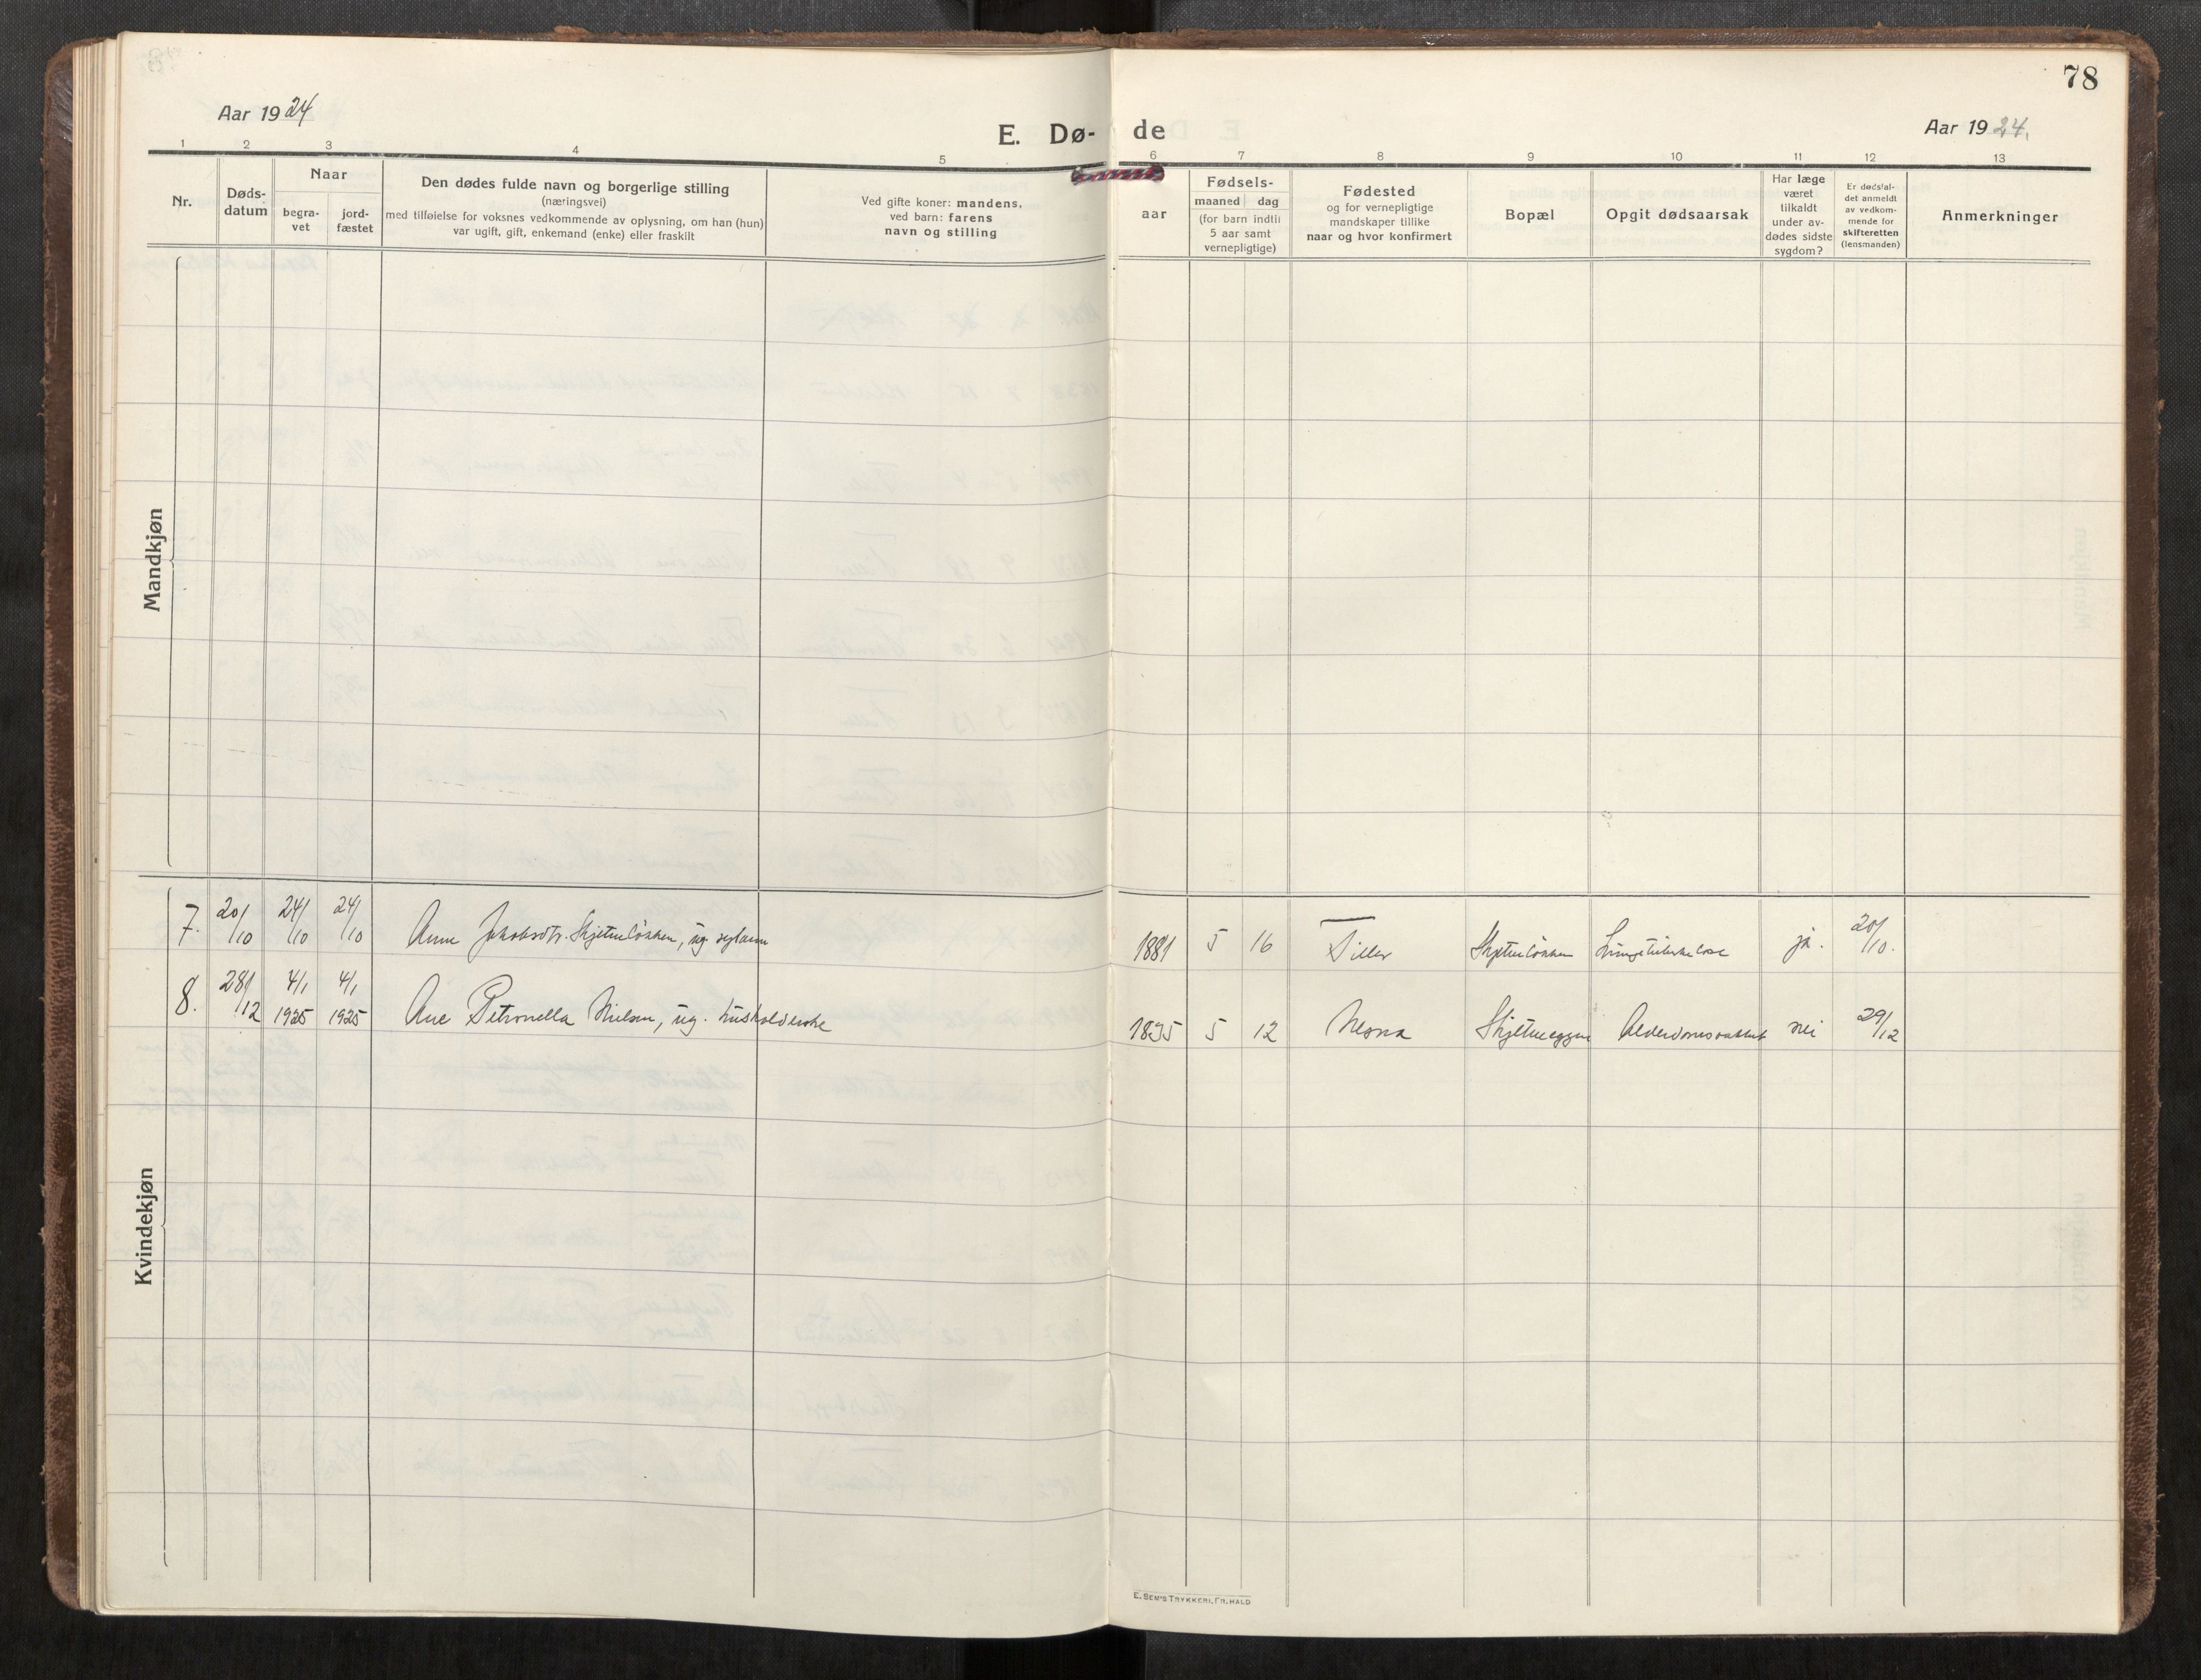 78
Aar 1924
E. Dø-
de
Aar 1924.
1 2 3 4 5 6 7 8 9 10 11 12 13
Nr.
Døds-
datum
Naar
begra-
vet
jord-
fæstet
Den dødes fulde navn og borgerlige stilling
(næringsvei)
med tilføielse for voksnes vedkommende av oplysning, om han (hun)
var ugift, gift, enkemand (enke) eller fraskilt
Ved gifte koner: mandens,
ved barn: farens
navn og stilling
Fødsels-
aar
maaned dag
(for barn indtil
5 aar samt
vernepligtige)
Fødested
og for vernepligtige
mandskaper tillike
naar og hvor konfirmert
Bopæl
Opgit dødsaarsak
Har læge
været
tilkaldt
under av-
dødes sidste
sygdom?
Er dødsfal-
det anmeldt
av vedkom-
mende for
skifteretten
(lensmanden)
Anmerkninger
Mandkjøn
Kvindekjøn
7. 20/10 24/10 24/10 Anne Jakobsdtr. Skjetneløkken, ug. 1881 5 16 Tiller Skjetneløkken Lungetuberkulose ja. 20/10.
8. 28/12 4/1 1925 4/1 1925 Ane Petronella Nielsen, ug. husholderske 1835 5 12 Nesna Skjetneeggen nei 29/12
E. SEM'S TRYKKERI, FR.HALD